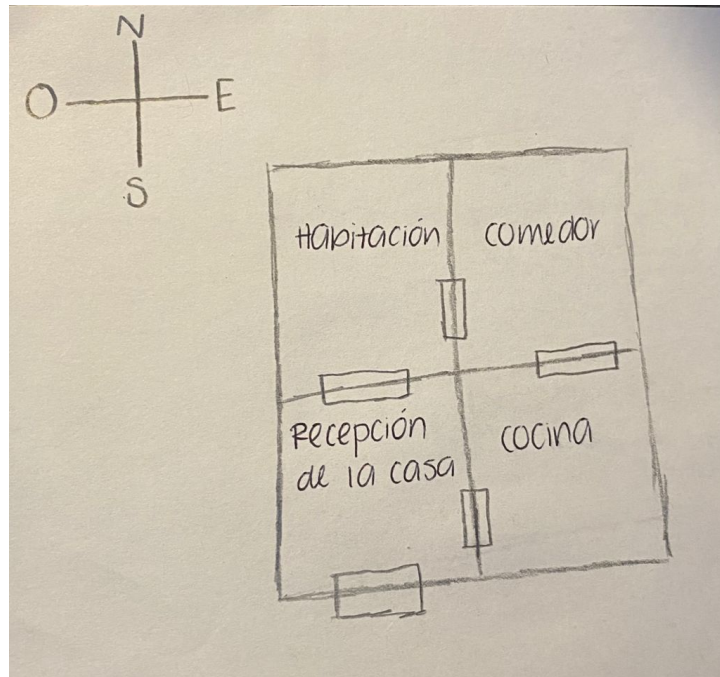 N
O E
S
Habitación comedor
Recepción
de la casa
cocina